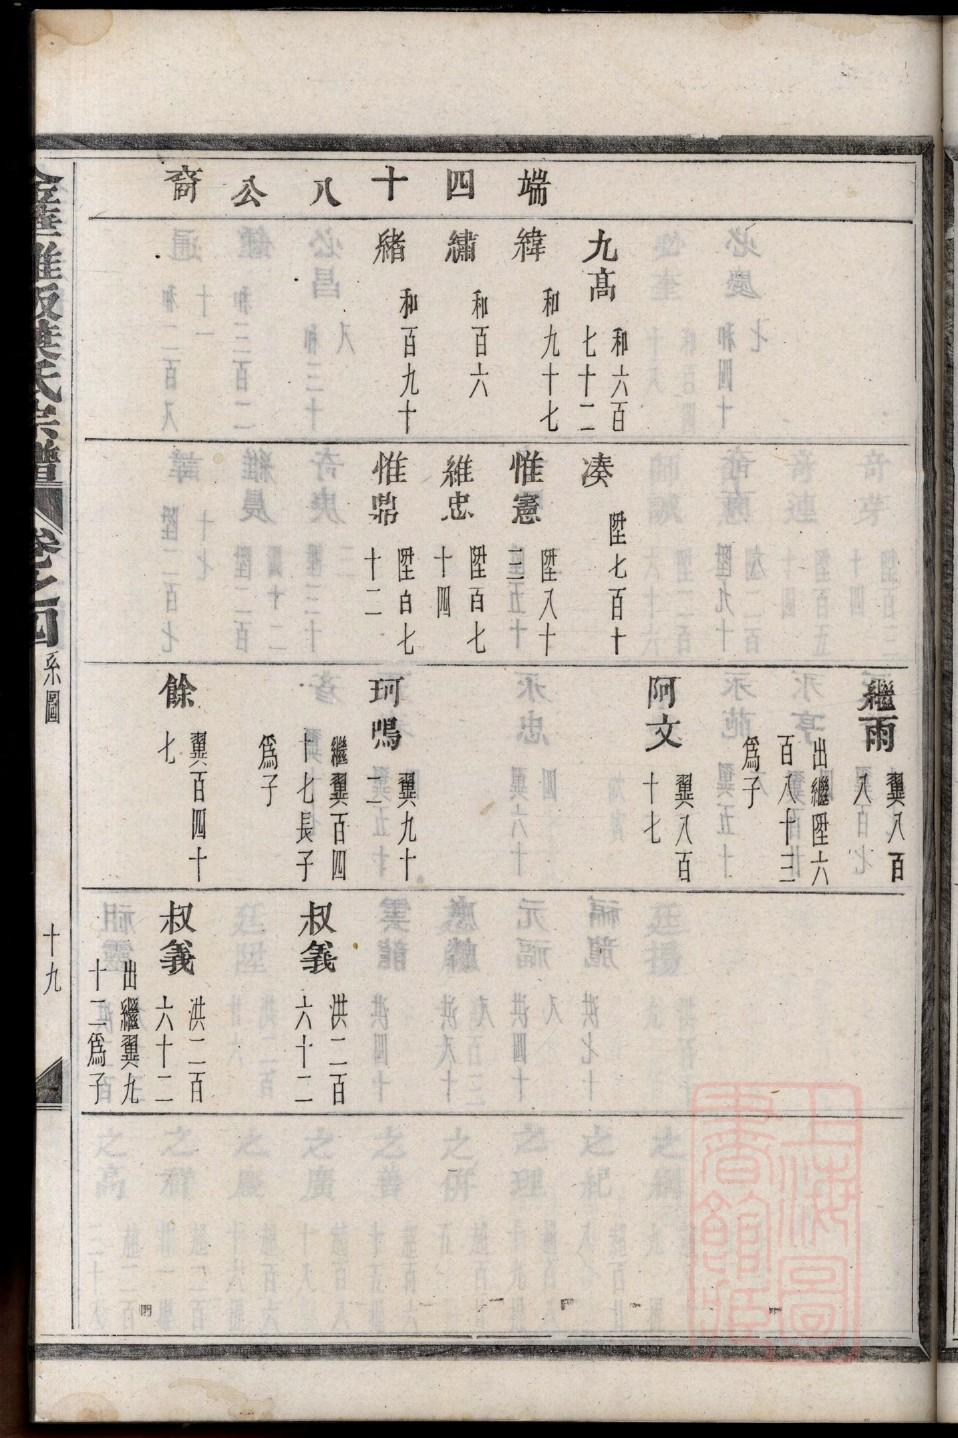 端四十八公裔
九高 和六百七十二
緯 和九十七
繡 和百六
緒 和百九十
湊 陞七百十
惟憲 陞八十三
維忠 陞百七十四
惟鼎 陞百七十二
繼雨 翼八百八
出繼陞六百八十三為子
阿文 翼八百十七
珂鳴 翼九十二
繼翼百四十七長子為子
餘 翼百四十七
叔義 洪二百六十二
叔義 洪二百六十二
出繼翼九十二為子
氏宗譜
卷之四
系圖
十九